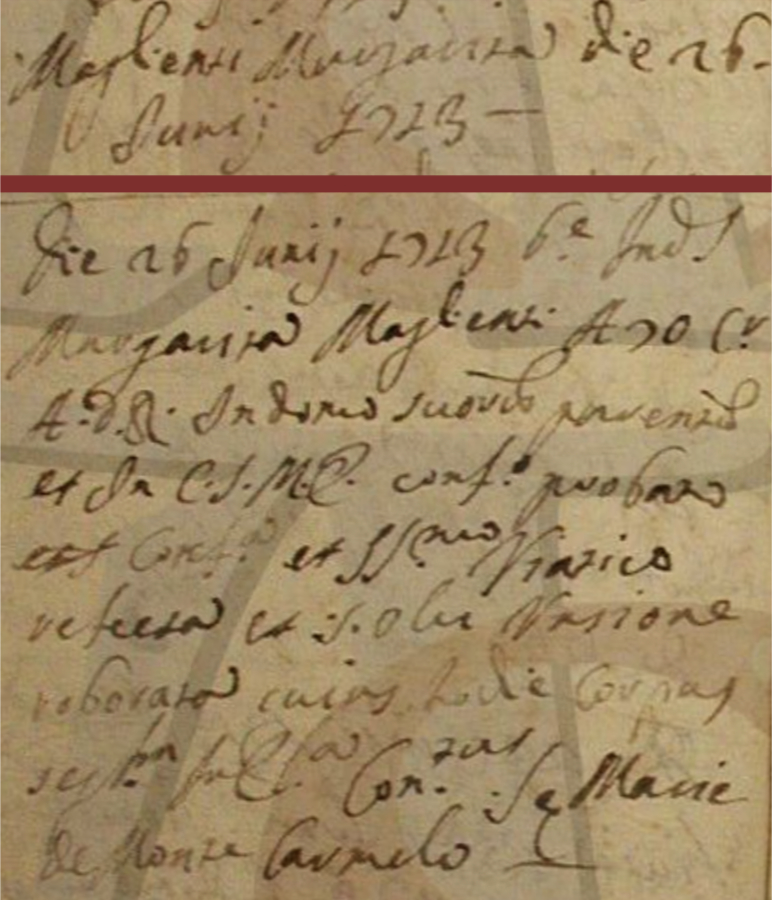 Maglienti Margarita die 26.
Junij 1713 —
Die 26 Junij 1713 6.e Ind.
Margarita Maglienti A 70 C.r
A.D.R. In domo suorũ parentũ
et In C.S.M.E. conf.o probato
est Conf.a et SS.mo Viatico
refecta et S. Olei Unsione
roborata cuius hodie Corpus
sep.tm In Ecc.a Con.tus S.e Marie
de Monte Carmelo